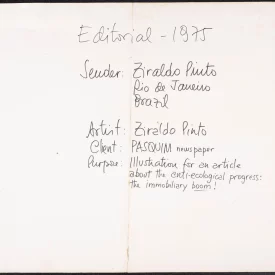 Editorial - 1975
Sender: Ziraldo Pinto
Rio de Janeiro
Brazil
Artist: Ziraldo Pinto
Client: PASQUIM newspaper
Purpose: Illustration for an article
about the anti-ecological progress:
the immobiliary boom!